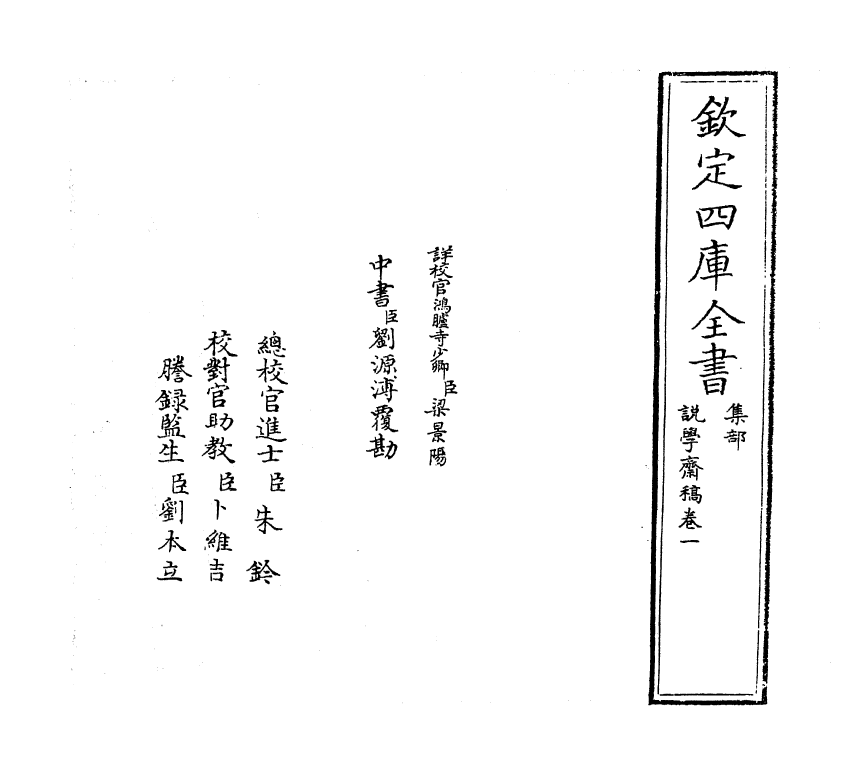 欽定四庫全書
集部
說學齋稿卷一
詳校官鴻臚寺少卿臣梁景陽
中書臣劉源溥覆勘
總校官進士臣朱鈐
校對官助教臣卜維吉
謄錄監生臣劉本立